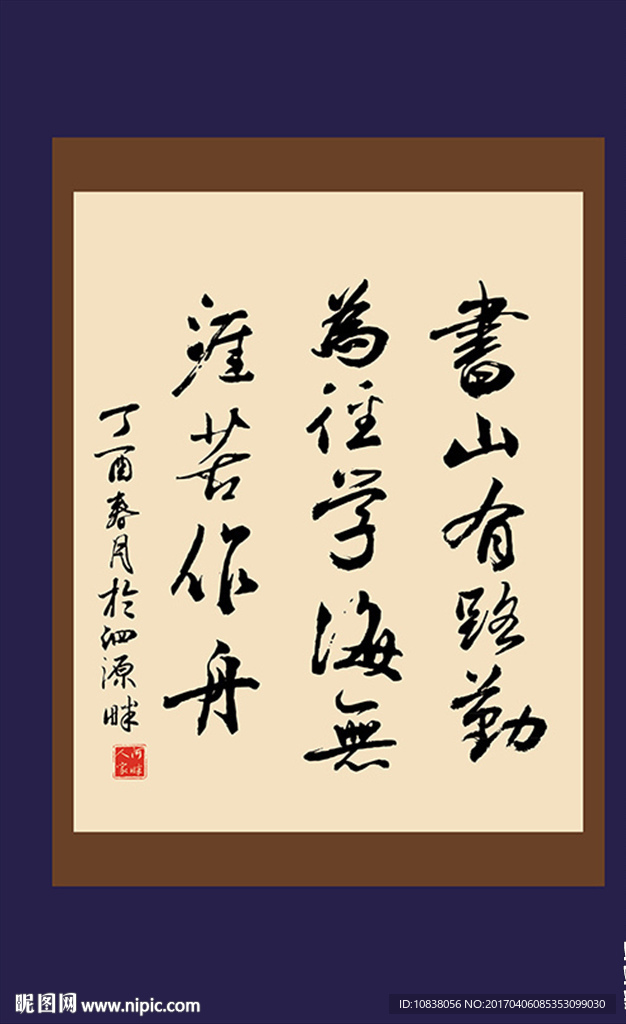 書山有路勤
為徑学海無
涯苦作舟
丁酉春月於泗源畔
河畔
人家
昵图网 www.nipic.com
ID:10838056 NO:20170406085353099030